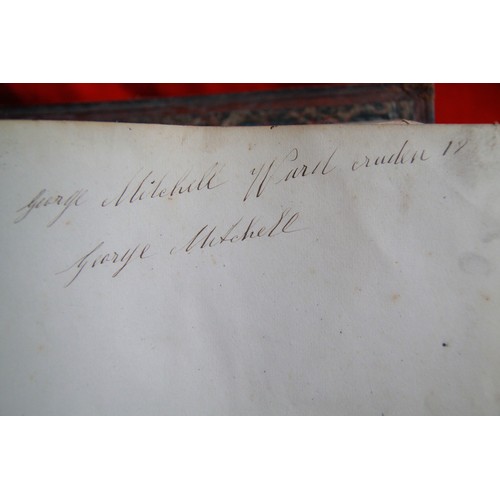 George Mitchell Ward cruden 18
George Mitchell